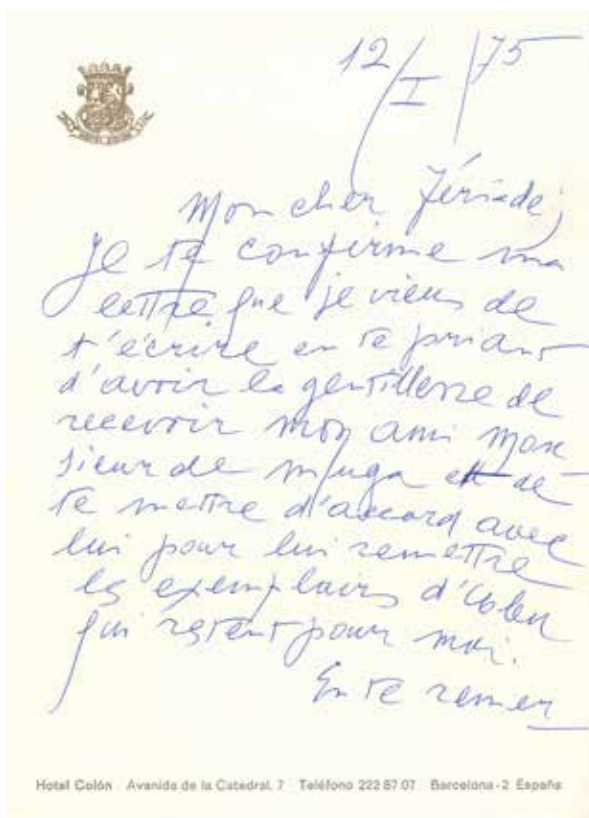 12/I/75
Mon cher Tériade,
Je te confirme ma
lettre que je viens de
t'écrire en te priant
d'avoir la gentillesse de
recevoir mon ami Mon
sieur de Muga et de
te mettre d'accord avec
lui pour lui remettre
les exemplaires d'Ubu
qui restent pour moi.
En te remer
Hotel Colón Avenida de la Catedral, 7 Teléfono 222 87 07 Barcelona-2 España